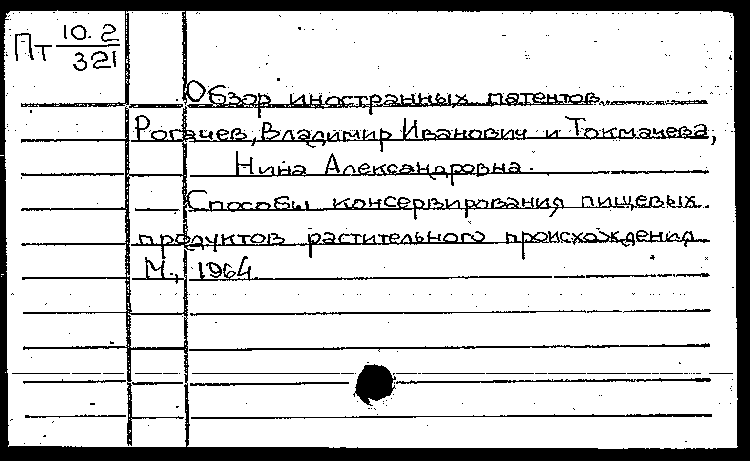 Пт 10.2
321
Обзор иностранных патентов
Рогачев, Владимир Иванович и Токмачева,
Нина Александровна.
Способы консервирования пищевых
продуктов растительного происхождения
М., 1964